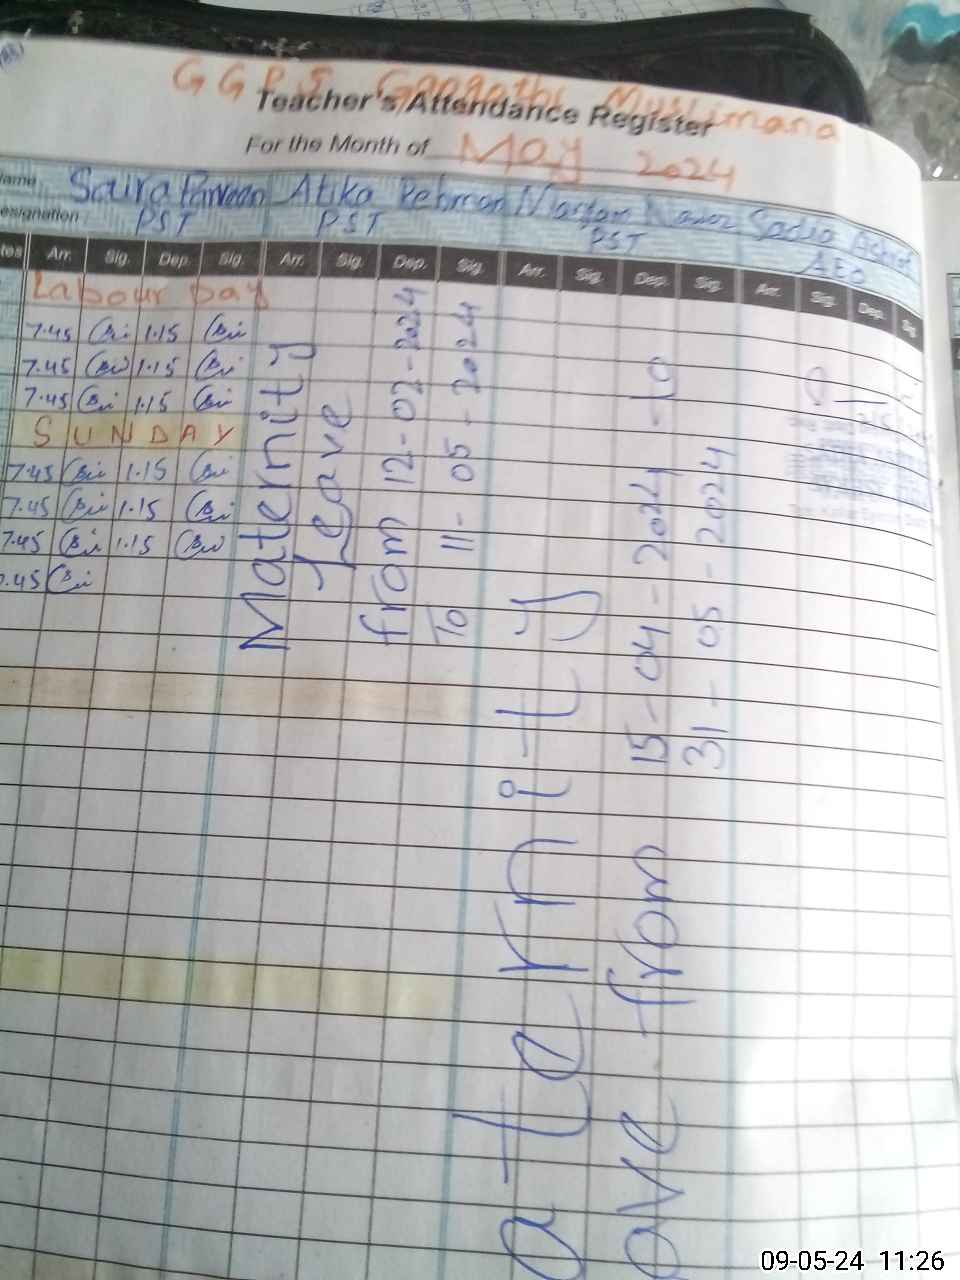 G G P S Googathi Muslimana
Teacher's Attendance Register
For the Month of May 2024
Name Saira Parveen Atika Rehman Maryam Nawaz Sadia Ashraf
Designation PST PST PST AEO
Arr. Sig. Dep. Sig. Arr. Sig. Dep. Sig. Arr. Sig. Dep. Sig. Arr. Sig. Dep. Sig.
Labour Day
7.45 1.15
7.45 1.15
7.45 1.15
SUNDAY
7.45 1.15
7.45 1.15
7.45 1.15
7.45
Maternity
Leave
from 12-02-2024
To 11-05-2024
aternity
ave from 15-04-2024 to
31-05-2024
09-05-24 11:26